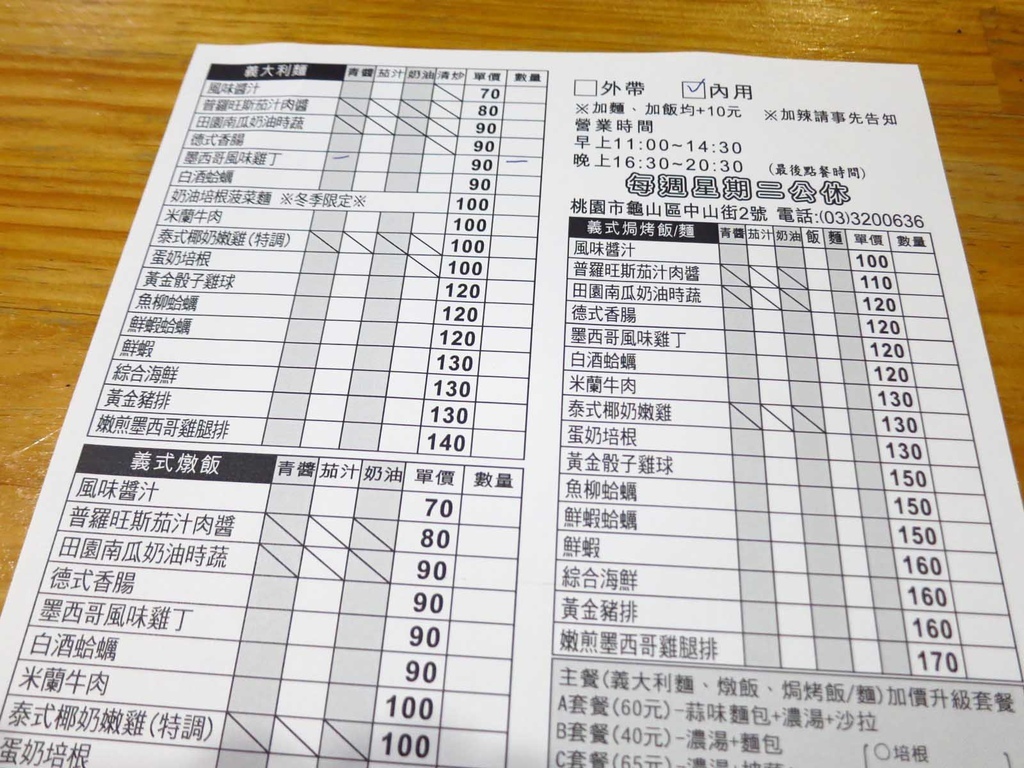 義大利麵 青醬 茄汁 奶油 清炒 單價 數量
風味醬汁 70
普羅旺斯茄汁肉醬 80
田園南瓜奶油時蔬 90
德式香腸 90
墨西哥風味雞丁 一 90 一
白酒蛤蠣 90
奶油培根菠菜麵 ※冬季限定※ 100
米蘭牛肉 100
泰式椰奶嫩雞(特調) 100
蛋奶培根 100
黃金骰子雞球 120
魚柳蛤蠣 120
鮮蝦蛤蠣 120
鮮蝦 130
綜合海鮮 130
黃金豬排 130
嫩煎墨西哥雞腿排 140
義式燉飯 青醬 茄汁 奶油 單價 數量
風味醬汁 70
普羅旺斯茄汁肉醬 80
田園南瓜奶油時蔬 90
德式香腸 90
墨西哥風味雞丁 90
白酒蛤蠣 90
米蘭牛肉 100
泰式椰奶嫩雞(特調) 100
蛋奶培根
□外帶 ☑內用
※加麵、加飯均+10元 ※加辣請事先告知
營業時間
早上11:00~14:30
晚上16:30~20:30 (最後點餐時間)
每週星期二公休
桃園市龜山區中山街2號 電話:(03)3200636
義式焗烤飯/麵 青醬 茄汁 奶油 飯 麵 單價 數量
風味醬汁 100
普羅旺斯茄汁肉醬 110
田園南瓜奶油時蔬 120
德式香腸 120
墨西哥風味雞丁 120
白酒蛤蠣 120
米蘭牛肉 130
泰式椰奶嫩雞 130
蛋奶培根 130
黃金骰子雞球 150
魚柳蛤蠣 150
鮮蝦蛤蠣 150
鮮蝦 160
綜合海鮮 160
黃金豬排 160
嫩煎墨西哥雞腿排 170
主餐(義大利麵、燉飯、焗烤飯/麵)加價升級套餐
A套餐(60元)-蒜味麵包+濃湯+沙拉
B套餐(40元)-濃湯+麵包
C套餐(65元)-濃湯+ [○培根